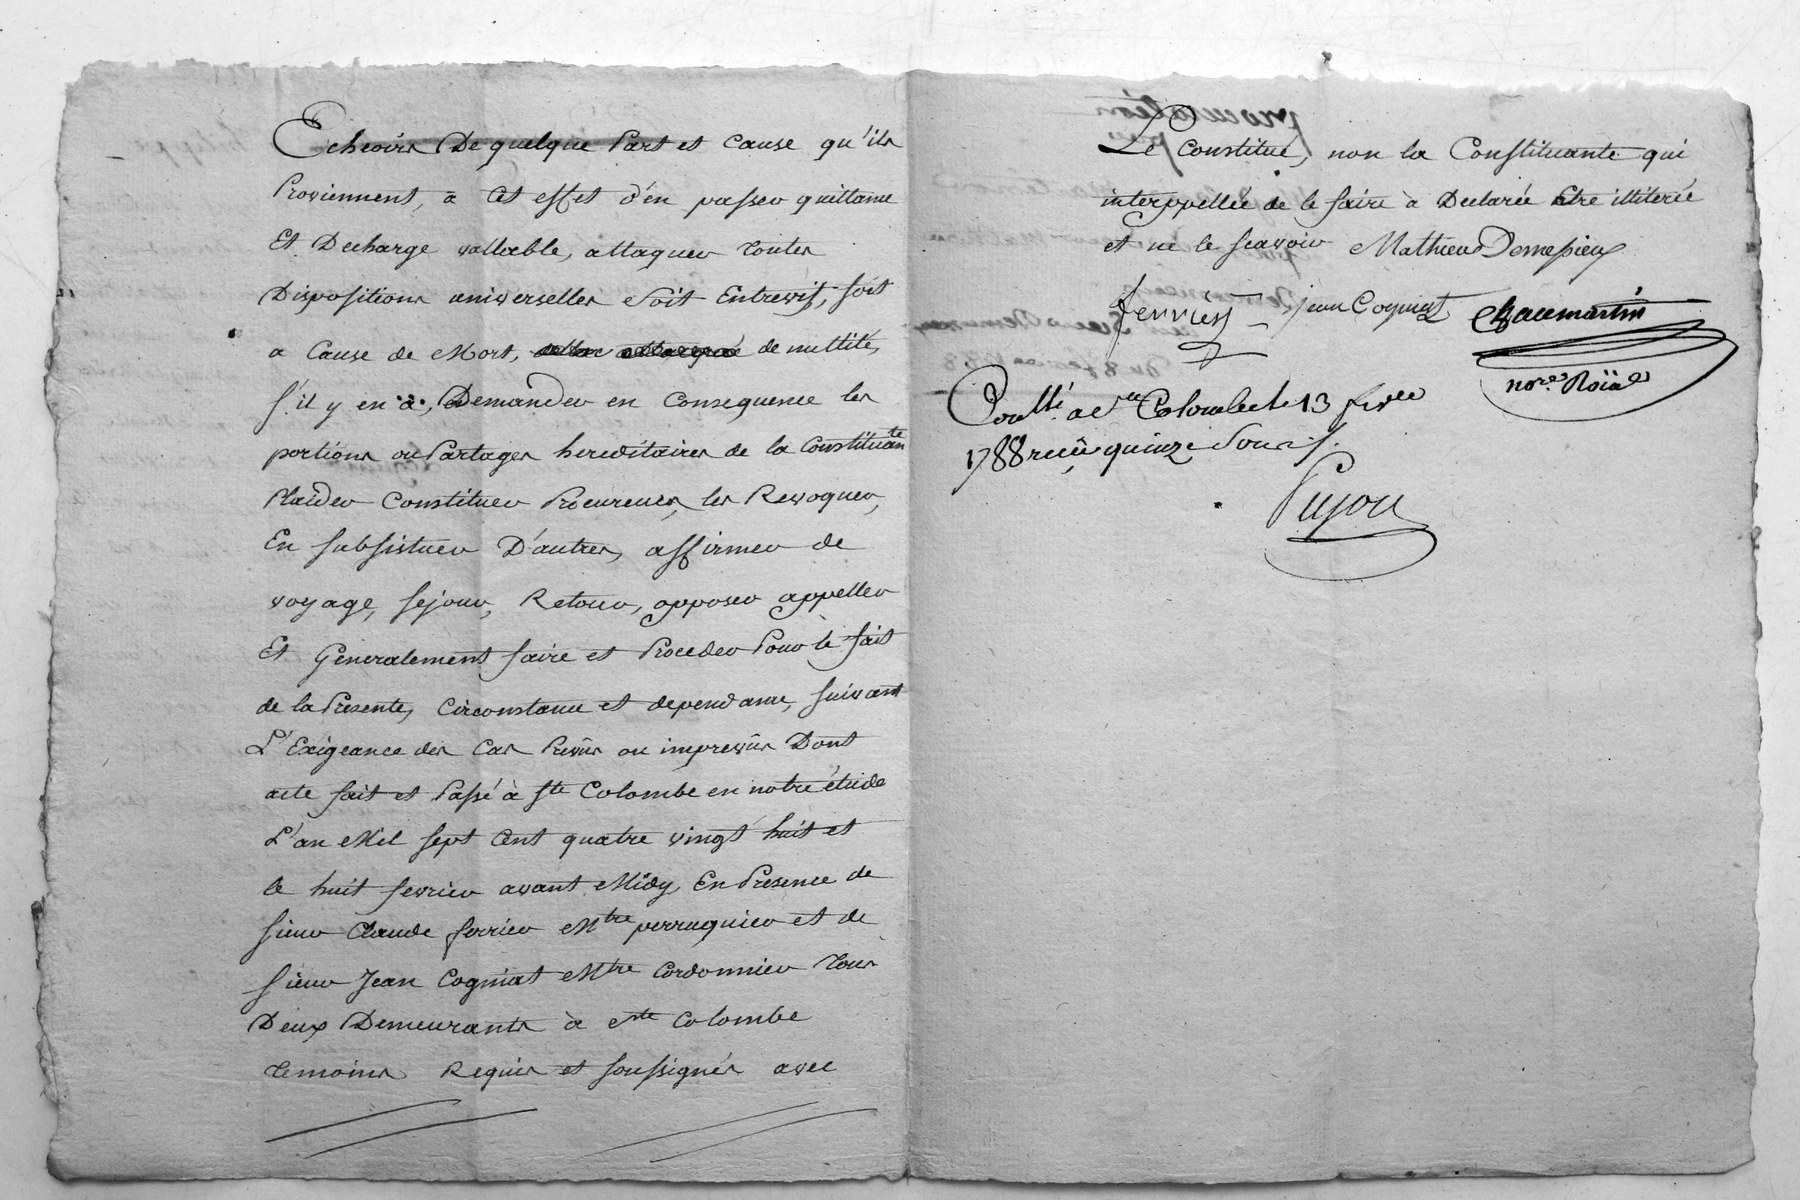 Echeoirs De quelque Part et Cause qu'ils
Proviennent, à Cet effet d'en passer quittance
Et Decharge vallable, attaquer toutes
Dispositions universelles soit Entrevifs, soit
a Cause de Mort, de nullité,
s'il y en à, Demander en Consequence les
portions ou Partages hereditaires de la Constituante
Plaider Constituer Procureurs, les Revoquer,
En subsistuer D'autres, affirmer de
voyage, sejour, Retour, opposer appeller
Et Generalement faire et Proceder Pour le fait
de la Presente, Circonstance et dependance, suivant
L'Exigeance des Cas Prévûs ou imprevûs Dont
acte fait et Passé à Ste Colombe en notre étude
L'an Mil sept Cent quatre vingt huit et
le huit fevrier avant Midy, En Presence de
sieur Claude ferrier Mtre perruquier et de
sieur Jean Cogniat Mtre Cordonnier tous
Deux Demeurants à Ste Colombe
temoins Requis et soussignés avec
Le Constitué, non la Constituante qui
interppellée de le faire à Declarée Etre illiterée
et ne le scavoir Mathieu Demepieux
ferrier jean Cogniat Chaumartin
nore. Roïal
Conllé. a Ste Colombe le 13 fevrier
1788 reçû quinze sous
Pujon